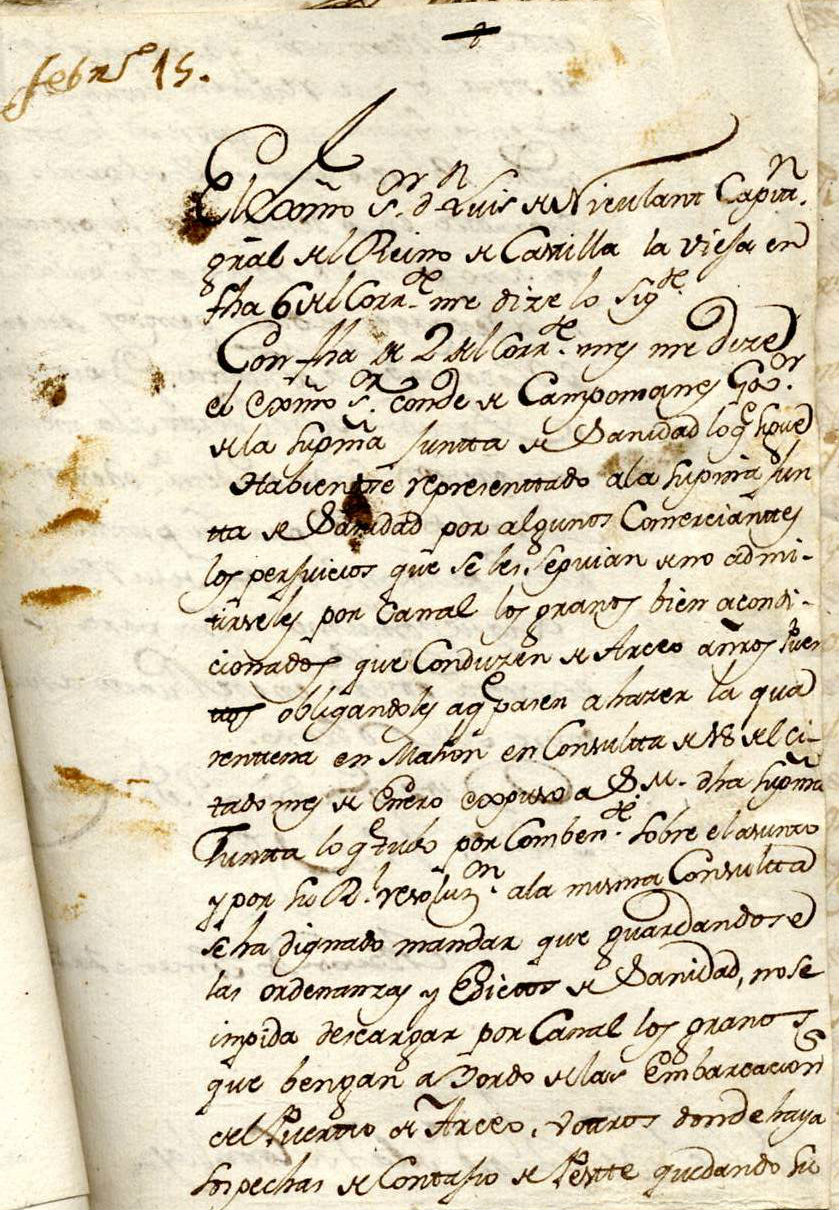 Febrº 15.
El Exmo Sor. Dn Luis de Nieulant Capitn.
gral del Reino de Castilla la vieja en
fha 6 del Corrte. me dize lo sigte.
Con fha de 2 del Corrte. mes me dize
el exmo Sr. conde de Campomanes Govor.
de la Supma Juntta de Sanidad lo qe sigue
Habiendose representtado a la Supma Jun
tta de Sanidad por algunos Comerciantes
los perjuicios que se les seguian de no admi-
tirseles por Canal los granos bien acondi-
cionados que Conduzen de Arceo a ñros Puer
ttos obligandoles a qe pasen a hazer la qua
rentena en Mahon en Consultta de 18 del ci-
tado mes de Enero expuso a S. M. dha Supma
Juntta lo qe tubo por Combente. sobre el asunto
y por su Rl. resoluzn. a la misma Consultta
se ha dignado mandar que guardandose
las ordenanzas y Edictos de Sanidad, no se
impida descargar por Canal los granos
que bengan a Bordo de las Embarcacions
del Puertto de Arceo, u otros donde haya
sospechas de Contajio de Peste quedando su